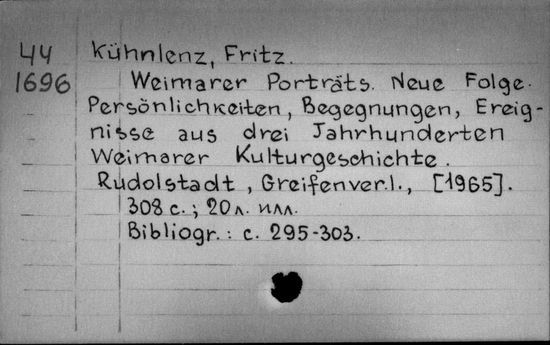 44 Kühnlenz, Fritz.
1696 Weimarer Porträts. Neue Folge.
Persönlichkeiten, Begegnungen, Ereig-
nisse aus drei Jahrhunderten
Weimarer Kulturgeschichte.
Rudolstadt, Greifenver.l., [1965].
308 с.; 20 л. илл.
Bibliogr.: с. 295-303.